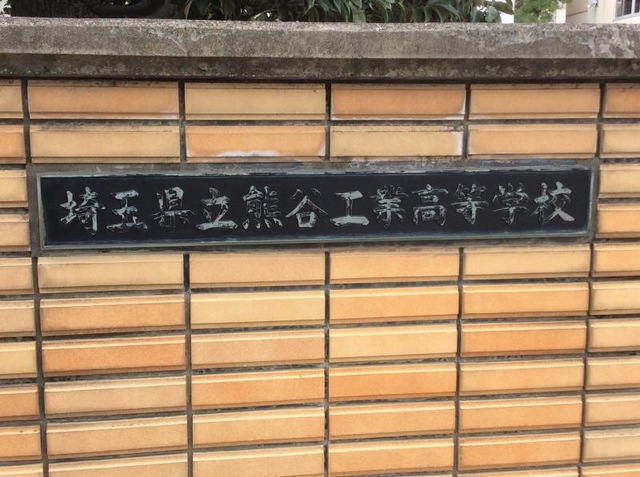 埼玉県立熊谷工業高等学校